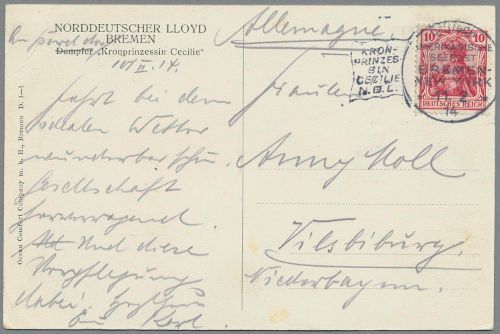 NORDDEUTSCHER LLOYD
BREMEN
Dampfer „Kronprinzessin Cecilie"
An Bord des
10/II. 14.
Fahrt bei dem
Wetter
wunderbar schön
Gesellschaft
hervorragend.
Und diese
Verpflegung
dabei.
Karl
Ocean Comfort Company m. b. H., Bremen D. 1—1
Allemagne
Fräulein
Anny Moll
Vilsbiburg
Niederbayern.
KRON-
PRINZES-
SIN
CECILIE
N.D.L.
10
10
DEUTSCHES REICH
AMERIKANISCHE
SEEPOST
BREMEN-
NEW-YORK
14